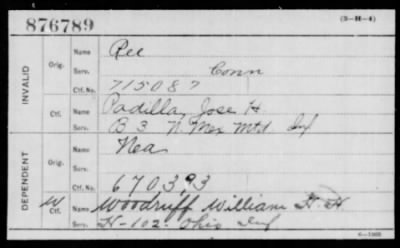 876789
(3-H-4)
INVALID
Orig.
Name Ree
Serv. Conn
Ctf. No. 715087
Ctf.
Name Padilla, Jose H
Serv. B 3 N. Mex Mtd. Inf
DEPENDENT
Orig.
Name Nea
Serv.
Ctf. No. 670,393
W Ctf.
Name Woodruff William H. H
Serv. H-102. Ohio Inf